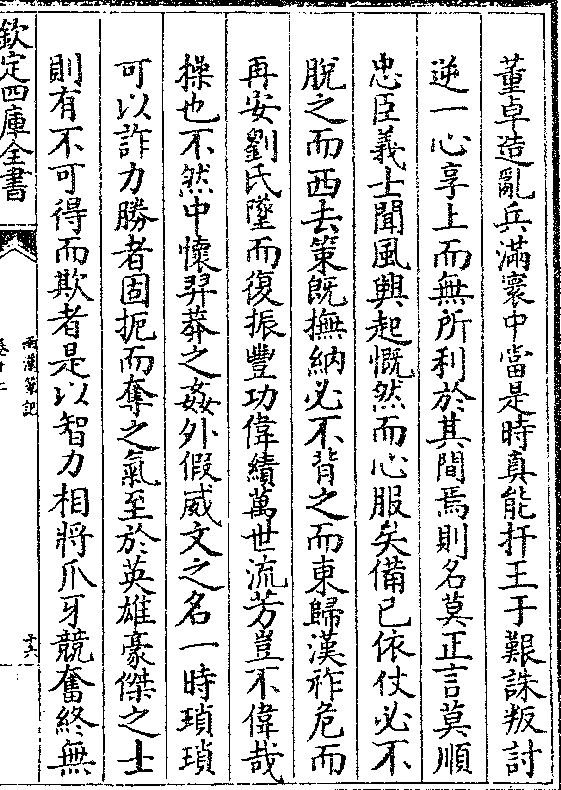 董卓造亂兵滿寰中當是時真能扞王于艱誅叛討
逆一心享上而無所利於其間焉則名莫正言莫順
忠臣義士聞風興起慨然而心服矣備已依仗必不
脫之而西去策既撫納必不背之而東歸漢祚危而
再安劉氏墜而復振豐功偉績萬世流芳豈不偉哉
操也不然中懷羿莽之姦外假威文之名一時瑣瑣
可以詐力勝者固扼而奪之氣至於英雄豪傑之士
則有不可得而欺者是以智力相將爪牙競奮終無
欽定四庫全書
兩漢筆記
卷十二
十六